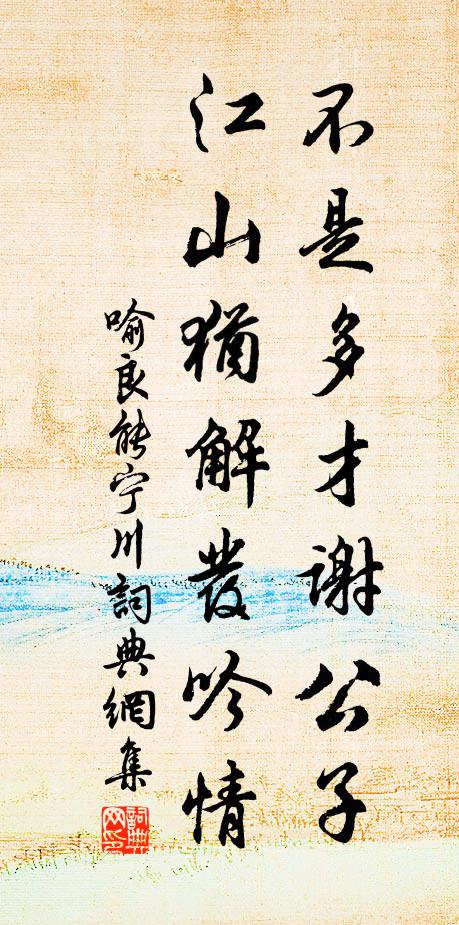 不是多才謝公子
江山猶解發吟情
喻良能宁川詞典網集
詞典網印